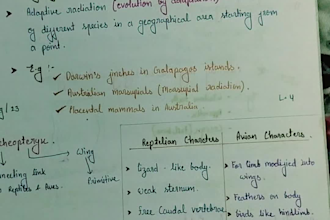 → Adaptive radiation (evolution by adaptation)
of different species in a geographical area starting from
a point.
→ Eg :-
✓ Darwin's finches in Galapagos islands.
✓ Australian marsupials (Marsupial radiation).
✓ Placental mammals in Australia.
/23
L-4
cheopteryx
Wing
Connecting link
Reptiles & Aves.
Primitive
Reptilian Characters
Avian Characters.
→ lizard - like body.
→ weak sternum.
→ Free Caudal vertebrae
→ Fore limb modified into
wings.
→ Feathers on body
→ Birds like hindlimb.